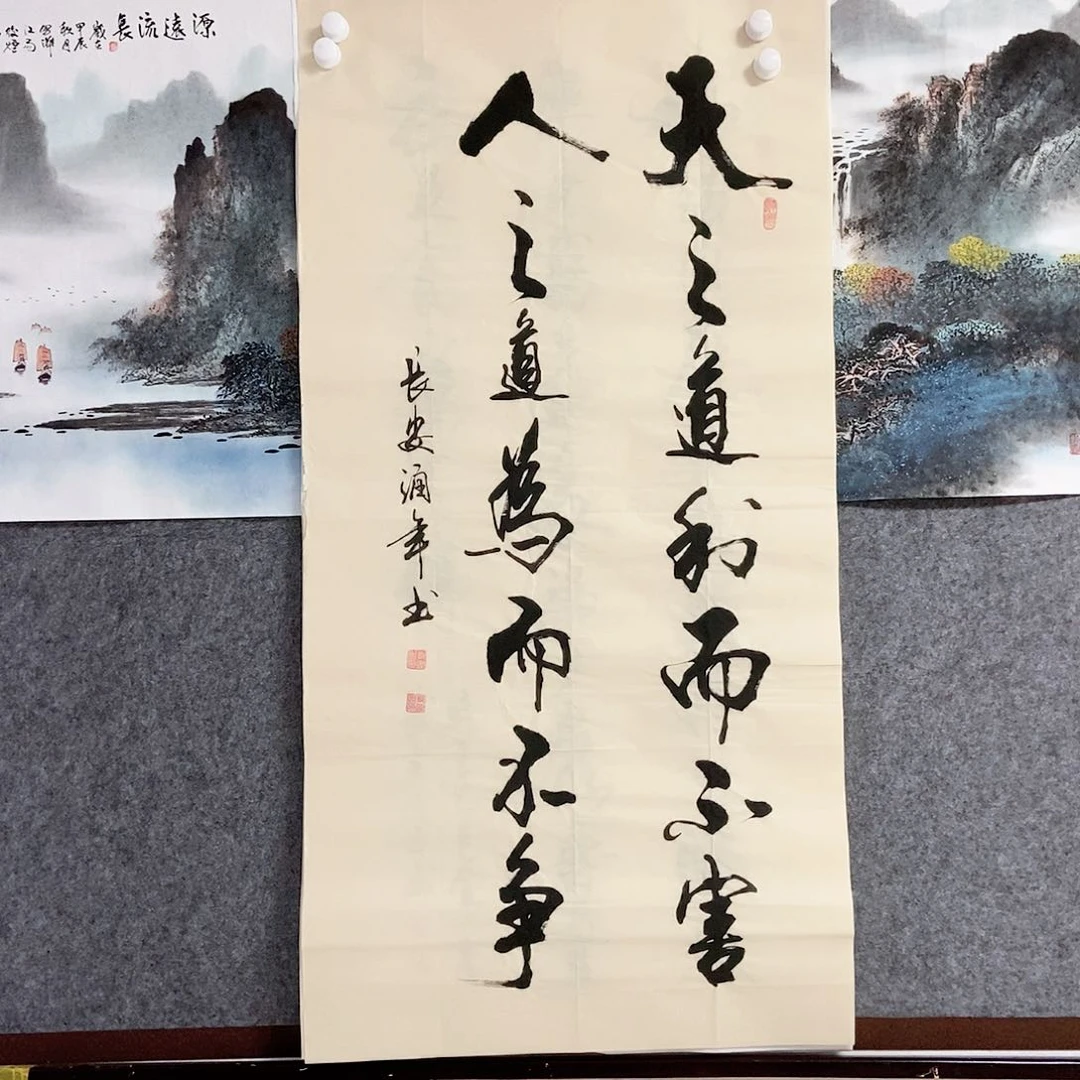 天之道利而不害
人之道為而不争
長安涌年书
源遠流長
歲在
甲辰
秋月